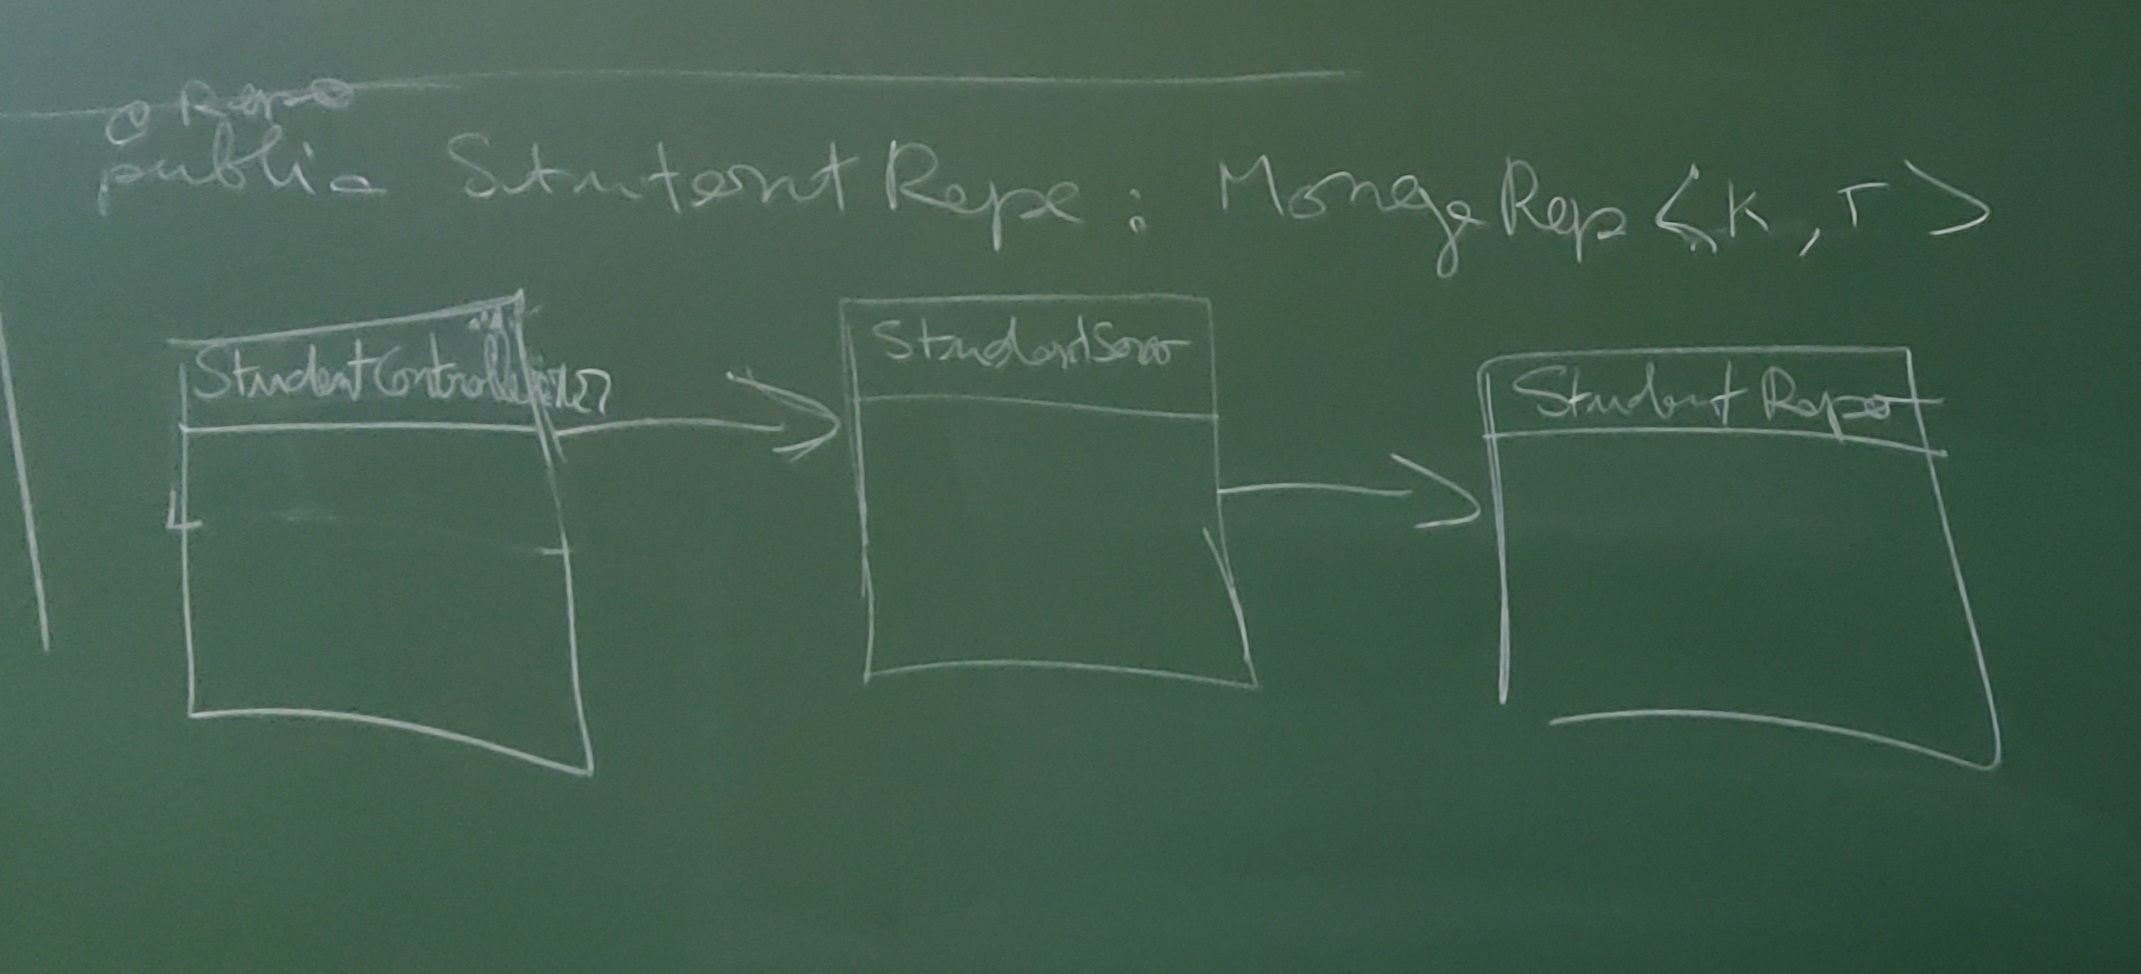 @ Repo
public StutentRepo : MongoRep <K, T>
StudentController
StudentServ
Student Repot